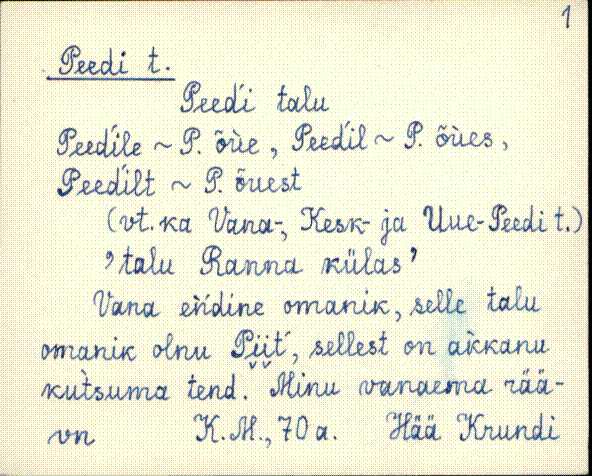 1
Peedi t.
Peed́i talu
Peed́ile ~ P. õùe, Peed́il ~ P. õùes,
Peed́ilt ~ P. õuest
(vt. ka Vana-, Kesk- ja Uue-Peedi t.)
'talu Ranna külas'
Vana eǹdine omanik, selle talu
omanik olnu Pi̬i̬t́, sellest on ak̀kanu
kut̀suma tend. Minu vanaema rää-
vn K.M., 70 a. Hää Krundi